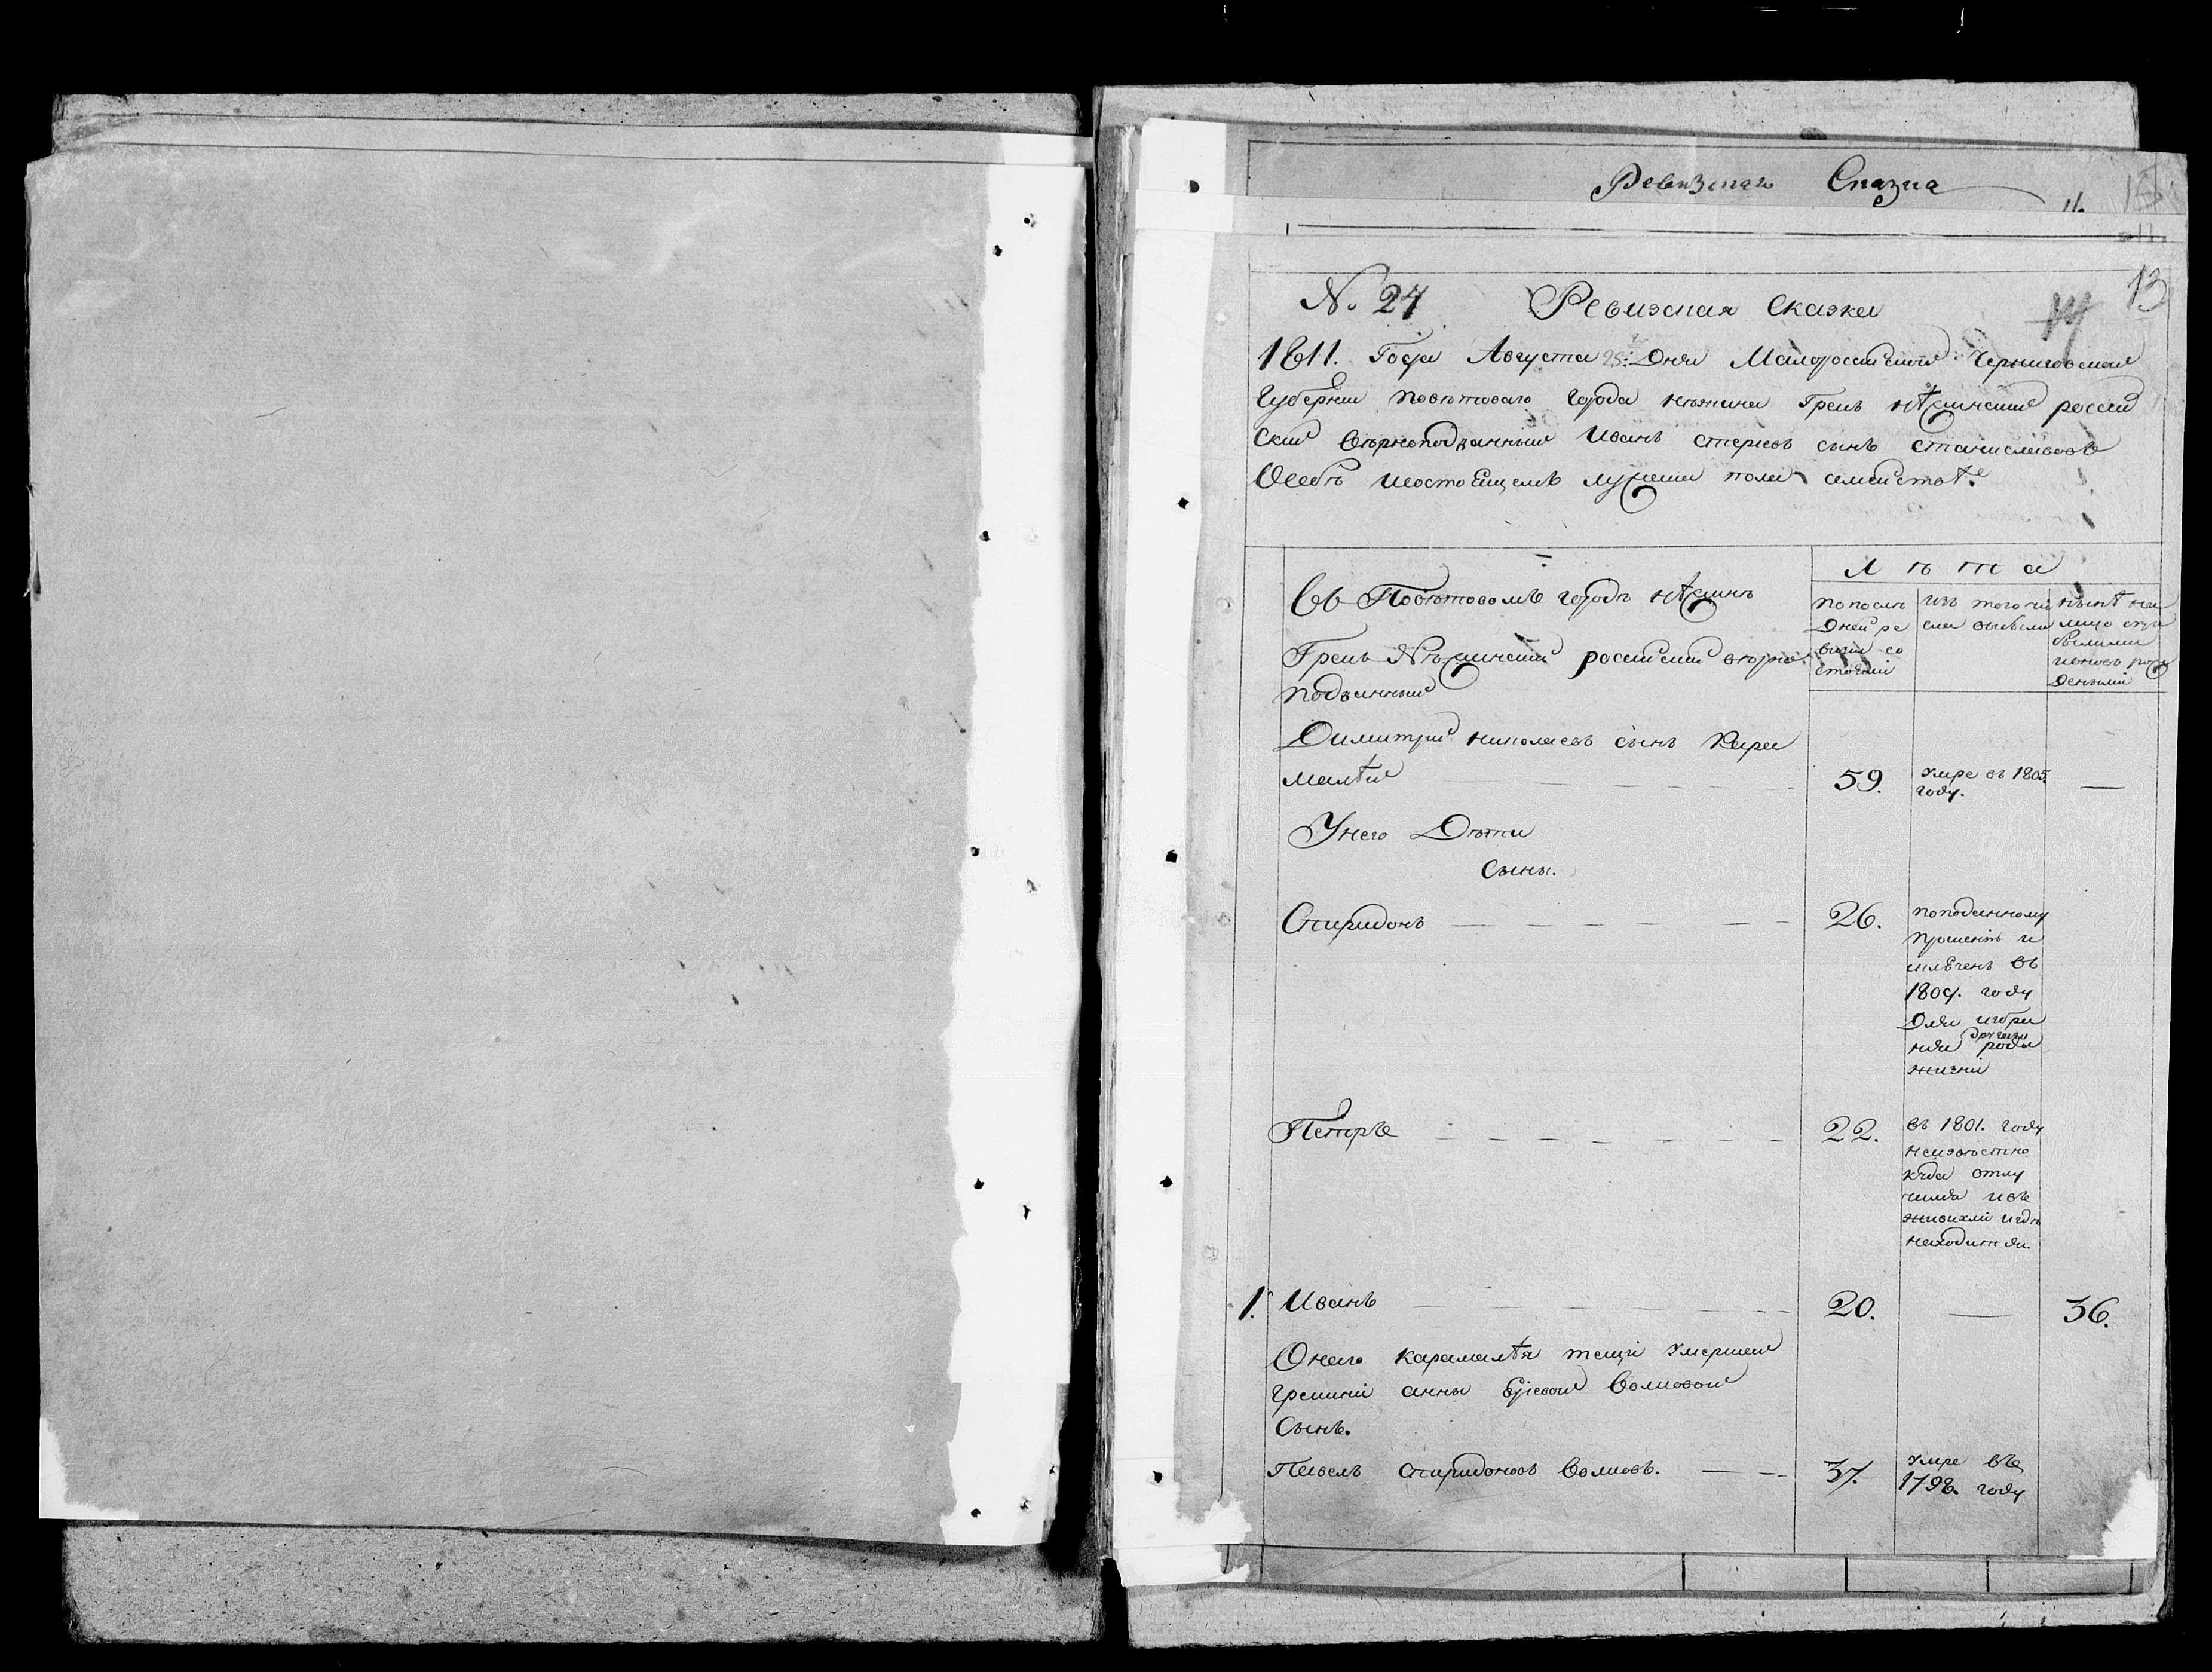 Ревизная Сказка
11.
13
№ 24 Ревизная Сказка
1811. Года Августа 25: Дня Малороссійской Черниговской
Губерніи повѣтоваго города нѣжина Грекъ нѣжинскій россій
скій вѣрноподданный Иванъ стеріевъ сынъ станиславовъ
О себѣ и состоящемъ мужеска пола семействѣ.
Въ Повѣтовомъ городѣ нѣжинѣ
Грекъ Нѣжинскій россійскій вѣрно
подданный
Лѣта
по послѣ
дней ре
визіи со
стояній
изъ того чи
сла выбыли
нынѣ на
лицо съ при
былыми
и вновь рож
денными
Димитрій николаевъ сынъ Кара
малѣй 59. умре въ 1805.
году. —
У него Дѣти
Сыны.
Спиридонъ 26. по поданному
прошенію и
сключенъ въ
1809. году
Для избра
нія другаго рода
жизни
Петръ 22. въ 1801. году
неизвѣстно
куда отлу
чился и въ
живыхъ ли гдѣ
находится.
1. Иванъ 20. — 36.
Онаго карамалѣя тещи умершей
грекини анны Волковой
Сынъ.
Павелъ Спиридоновъ Волковъ. 37. умре въ
1798. году